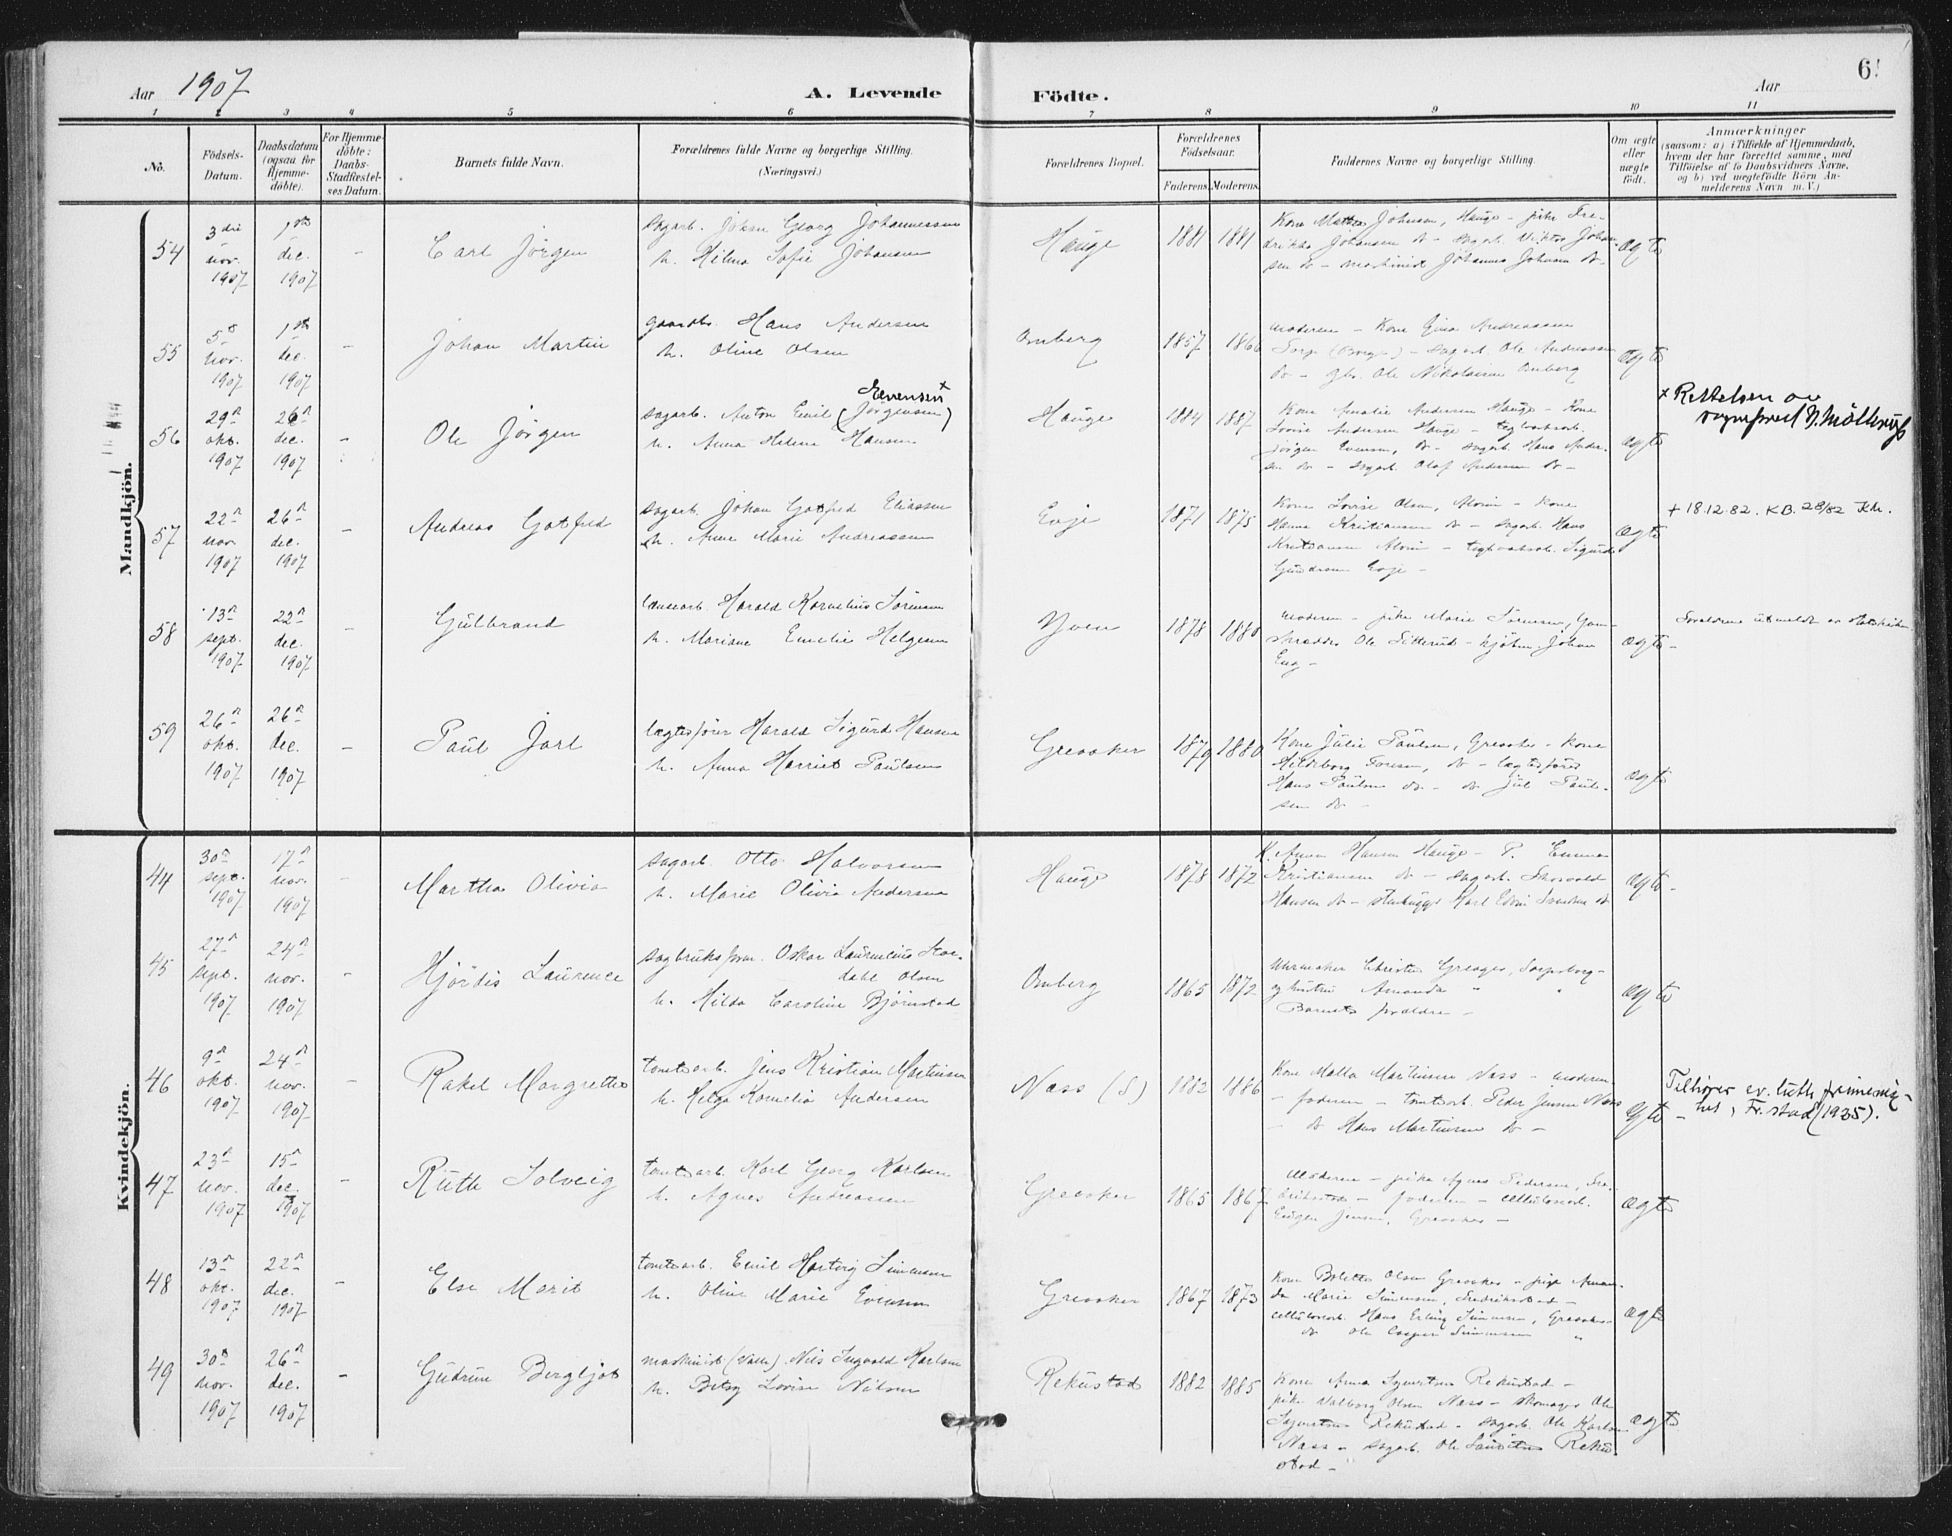 Aar 1907
A. Levende
Födte.
Aar
6
1 2 3 4 5 6 7 8 9 10 11
No.
Födsels-
Datum.
Daabsdatum
(ogsaa for
Hjemme-
döbte).
For Hjemme-
döbte:
Daabs-
Stadfæstel-
ses Datum.
Barnets fulde Navn.
Forældrenes fulde Navne og borgerlige Stilling.
(Næringsvei.)
Forældrenes Bopæl.
Forældrenes
Födselsaar.
Faderens.
Moderens.
Faddernes Navne og borgerlige Stilling.
Om ægte
eller
uægte
födt.
Anmærkninger
(saasom: a) i Tilfælde af Hjemmedaab,
hvem der har forrettet samme, med
Tilföielse af to Daabsvidners Navne,
og b) ved uægtefödte Börn An-
melderens Navn m. V.)
Mandkjön.
54
3die
nov.
1907
1ste
dec.
1907
–
Carl Jörgen
sagarb. Johan Georg Johannessen
h. Hilma Sofie Johansen
Hauge
1881 1881
ægte
55
5te
nov.
1907
1ste
dec.
1907
–
Johan Martin
gaardbr. Hans Andersen
h. Oline Olsen
Omberg
1857 1866
ægte
56
29n
okt.
1907
26n
dec.
1907
–
Ole Jörgen
Evensen x
sagarb. Anton Emil (Jörgensen)
h. Anna Helene Hansen
Hauge
1884 1887
Kone Amalie Andersen Hauge – Kone
Lovise Andersen Hauge – teglverksarb.
Jörgen Evensen, do – sagarb. Hans Ander-
sen do – sagarb. Olaf Andersen do –
ægte
x Rettelsen av
sogneprest
57
22n
nov.
1907
26n
dec.
1907
–
Andreas Gotfred
sagarb. Johan Gotfred Eliassen
h. Anne Marie Andreassen
Evje
1871 1875
Kone Lovise Olsen, – Kone
Hanna Kristiansen do – sagarb. Hans
Kristiansen – teglverksarb. Sigurd
Evje –
ægte
+ 18.12.82. KB. 28/82
58
13n
sept.
1907
22n
dec.
1907
–
Gulbrand
Harald Kornelius Sörensen
h. Mariane Emelie Helgesen
Yven
1878 1880
moderen – pike Marie Sörensen,
skrædder Ole – kjöbm. Johan
Eng –
ægte –
59
26n
okt.
1907
26n
dec.
1907
–
Paul Jarl
lægtesförer Harald Sigurd Hansen
h. Anna Harriet Paulsen
Greaaker
1879 1880
Kone Julie Paulsen, Greaaker – Kone
Hildeborg Toresen, do – lægtesförer
Hans Paulsen do – do Jul Paul-
sen do –
ægte
Kvindekjön.
44
30te
sept.
1907
17n
nov.
1907
–
Martha Olivia
sagarb. Otto Halvorsen
h. Marie Olivia Andersen
Hauge
1878 1872
K. Anna Hansen Hauge – P. Emma
Kristiansen do – sagarb. Thorvald
Hansen do – stenhugger Karl Edvin do
ægte –
45
27n
sept.
1907
24n
nov.
1907
–
Hjördis Laurence
sagbruksform. Oskar Laurentius Sko-
dahl Olsen
h. Hilda Caroline Björnstad
Omberg
1865 1872
Urmaker Christen Greager, Sarpsborg –
og hustru Amanda " "
Barnets forældre –
ægte
46
9n
okt.
1907
24n
nov.
1907
–
Rakel Margrethe
tomtearb. Jens Kristian Martinsen
h. Helga Kornelia Andersen
Næss (S)
1882 1886
Kone Malla Martinsen Næss – moderen
– faderen – tomtearb. Peder Jensen Næss
– do Hans Martinsen do –
ægte –
Tilhörer ev. luth. frimenig-
het, Fr.stad (1935).
47
23n
nov.
1907
15n
dec.
1907
–
Ruth Solveig
tomtearb. Karl Georg Karlsen
h. Agnes Andreassen
Greaaker
1865 1867
Moderen – pike Agnes Pedersen, Fre-
drikstad – faderen – cellulosearb.
Eugen Jensen, Greaaker –
ægte
48
13n
okt.
1907
22n
dec.
1907
–
Else Marit
tomtearb. Emil Hartvig Simensen
h. Oline Marie Evensen
Greaaker
1867 1873
Kone Bolette Olsen Greaaker – pige Aman-
da Marie Simensen, Fredrikstad –
cellulosearb. Hans Erling Simensen, Greaaker –
do Ole Casper Simensen "
ægte
49
30te
nov.
1907
26n
dec.
1907
–
Gudrun Bergljot
maskinist Nils Ingvald Karlsen
h. Betsy Lovise Nilsen
Rekustad
1882 1885
Kone Anna Syvertsen Rekustad –
pike Valborg Olsen Næss – skomager Ole
Syvertsen Rekustad – sagarb. Ole Karlsen
Næss – sagarb. Ole Lauritsen Reku-
stad –
ægte